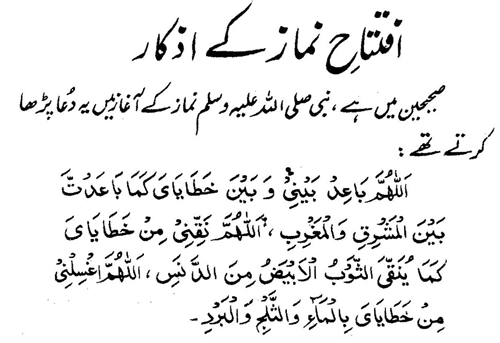 افتتاحِ نماز کے اذکار
صحیحین میں ہے، نبی صلی اللہ علیہ وسلم نماز کے آغاز میں یہ دُعا پڑھا
کرتے تھے :
اَللّٰهُمَّ بَاعِدْ بَيْنِيْ وَ بَيْنَ خَطَايَايَ كَمَا بَاعَدْتَّ
بَيْنَ الْمَشْرِقِ وَالْمَغْرِبِ، اَللّٰهُمَّ نَقِّنِيْ مِنْ خَطَايَايَ
كَمَا يُنَقَّى الثَّوْبُ الْاَبْيَضُ مِنَ الدَّنَسِ، اَللّٰهُمَّ اغْسِلْنِيْ
مِنْ خَطَايَايَ بِالْمَآءِ وَالثَّلْجِ وَالْبَرَدِ۔